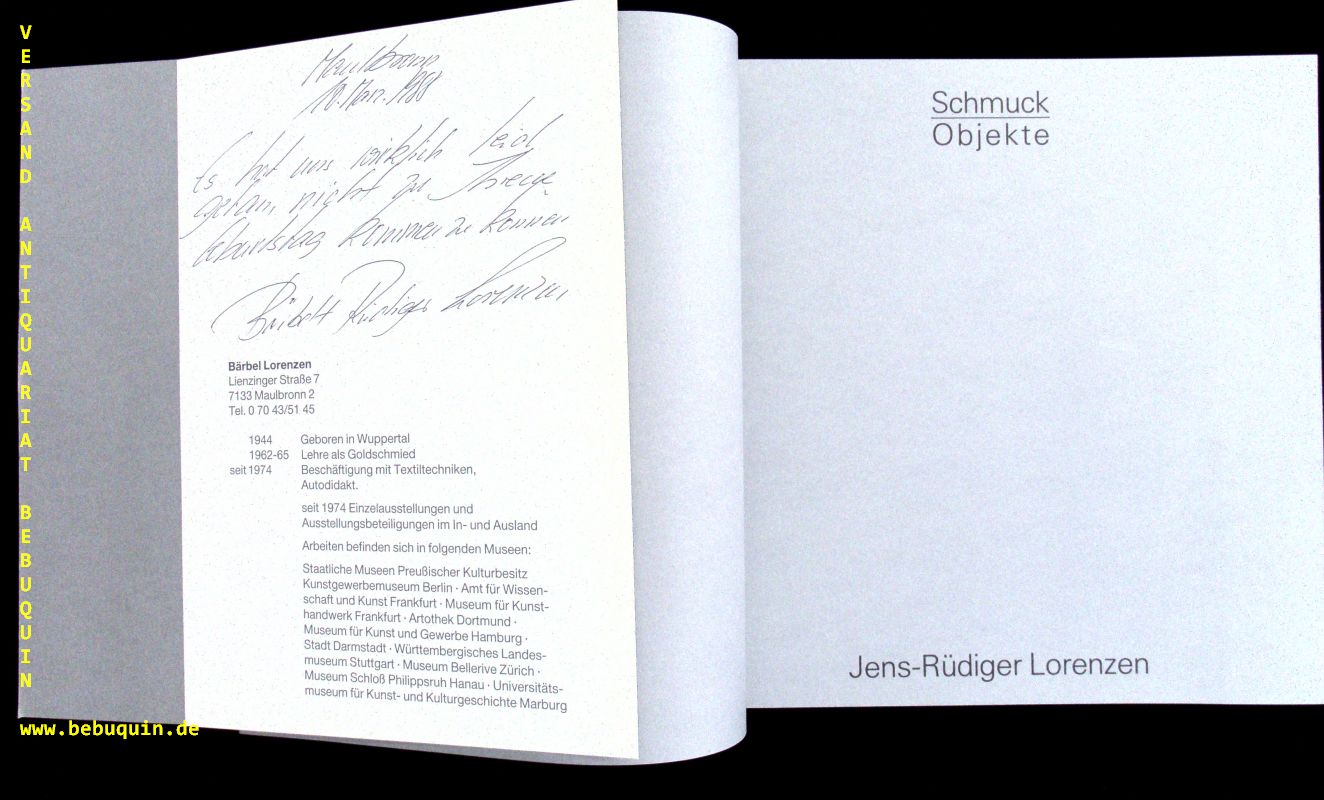 VERSAND ANTIQUARIAT BEBUQUIN
www.bebuquin.de
Maulbronn
10. März. 1988
Es hat uns wirklich leid
getan, nicht zu Ihrem
Geburtstag kommen zu können
Bärbel + Rüdiger Lorenzen
Bärbel Lorenzen
Lienzinger Straße 7
7133 Maulbronn 2
Tel. 0 70 43/51 45
1944 Geboren in Wuppertal
1962-65 Lehre als Goldschmied
seit 1974 Beschäftigung mit Textiltechniken,
Autodidakt.
seit 1974 Einzelausstellungen und
Ausstellungsbeteiligungen im In- und Ausland
Arbeiten befinden sich in folgenden Museen:
Staatliche Museen Preußischer Kulturbesitz
Kunstgewerbemuseum Berlin · Amt für Wissen-
schaft und Kunst Frankfurt · Museum für Kunst-
handwerk Frankfurt · Artothek Dortmund ·
Museum für Kunst und Gewerbe Hamburg ·
Stadt Darmstadt · Württembergisches Landes-
museum Stuttgart · Museum Bellerive Zürich ·
Museum Schloß Philippsruh Hanau · Universitäts-
museum für Kunst- und Kulturgeschichte Marburg
Schmuck
Objekte
Jens-Rüdiger Lorenzen